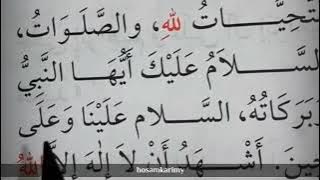 لتحِيَّاتُ لِلّٰهِ، والصَّلَوَاتُ،
السَّلَامُ عَلَيْكَ أَيُّهَا النَّبِيُّ
وَبَرَكَاتُهُ، السَّلام عَلَيْنَا وَعَلَى
حِينَ. أَشْهَدُ أَنْ لَا إِلٰهَ إِلَّا اللهُ
hosamkarimy